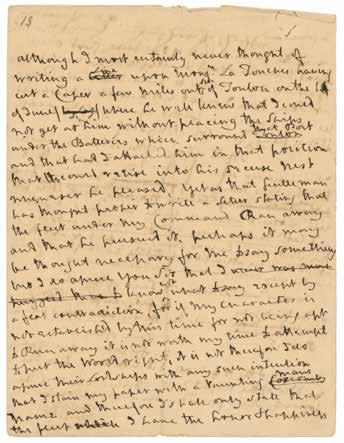 13
although I most certainly never thought of
writing a letter upon Monsr. La Touches having
cut a Caper a few miles out of Toulon on the
of June where he well knew that I could
not get at him without placing the Ships
under the Batteries which surround that Port
Toulon
and that had I attack'd him in that position
that he could retire into his secure nest
whenever he pleased, Yet as that Gentleman
has thought proper to write a letter stating that
the fleet under my Command Ran away
and that he pursued it, perhaps it may
be thought necessary for me to say something
but I do assure You Sir that I never was more
puzzled than I know what to say except by
a flat contradiction, for if my Character is
not established by this time for not being apt
to Run away it is not worth my time to attempt
to put the World right, it is not therefore I do
assure their Lordships with any such intention
that I stain my paper with a vaunting mans
Coxcombs
name and therefore I shall only state that
the fleet which I have the honor & happiness